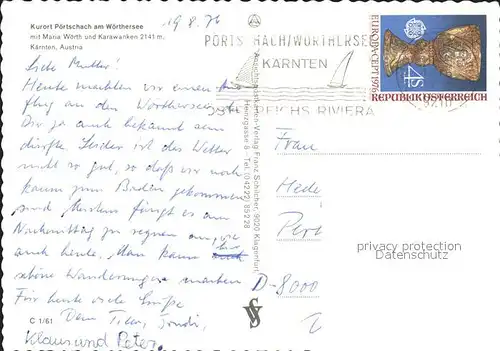 Kurort Pörtschach am Wörthersee
mit Maria Wörth und Karawanken 2141 m,
Kärnten, Austria
19.8.76
Liebe Mutter!
Heute machten wir einen
flug an den Wörthersee
Dir ja auch bekannt sein
dürfte. Leider ist das Wetter
nicht so gut, so daß wir noch
kaum zum Baden gekommen
sind. Meistens fängt es am
Nachmittag zu regnen an, wie
auch heute. Man kann
schöne Wanderungen machen
Für heute viele Grüße
C 1/61
Dein
Klaus und Peter.
Ansichtskarten-Verlag Franz Schilcher, 9020 Klagenfurt,
Heinzgasse 8 - Tel. (0 42 22) 85 2 28
PÖRTSCHACH/WÖRTHERSEE
KÄRNTEN
ÖSTERREICHS RIVIERA
EUROPA CEPT 1976
4S
REPUBLIK ÖSTERREICH
Frau
D-8000
privacy protection
Datenschutz